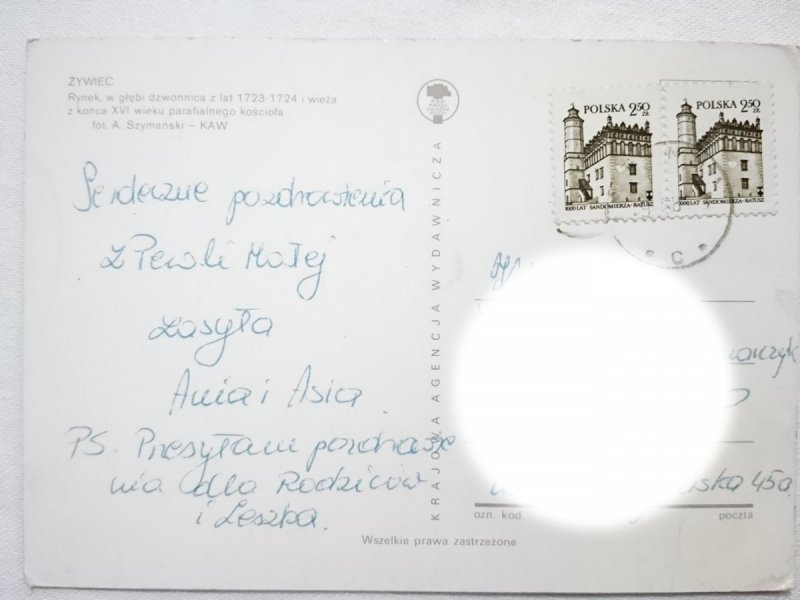 ŻYWIEC
Rynek, w głębi dzwonnica z lat 1723-1724 i wieża
z końca XVI wieku parafialnego kościoła
fot. A. Szymański – KAW
Serdeczne pozdrowienia
z Pewli Małej
zasyła
Ania i Asia
PS. Przesyłam pozdrowie
nia dla Rodziców
i Leszka.
KRAJOWA AGENCJA WYDAWNICZA
POLSKA 2,50 ZŁ
1000 LAT SANDOMIERZA-RATUSZ
POLSKA 2,50 ZŁ
1000 LAT SANDOMIERZA-RATUSZ
C
45a
ozn. kod. poczta
Wszelkie prawa zastrzeżone